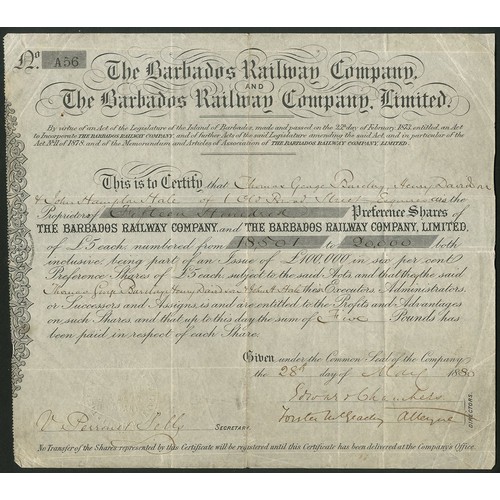 No. A56
The Barbados Railway Company,
AND
The Barbados Railway Company, Limited.
By virtue of an Act of the Legislature of the Island of Barbados, made and passed on the 22nd day of February 1873, entitled, an Act
to Incorporate THE BARBADOS RAILWAY COMPANY, and of further Acts of the said Legislature amending the said Act, and in particular of the
Act No. 11 of 1878, and of the Memorandum and Articles of Association of THE BARBADOS RAILWAY COMPANY, LIMITED.
This is to Certify that Thomas George Barclay Henry Davidson
& John Hampton Hale of 1 Old Broad Street as the
Proprietors of Hundred Preference Shares of
THE BARBADOS RAILWAY COMPANY, and THE BARBADOS RAILWAY COMPANY, LIMITED,
of £5 each, numbered from 18501 to 20,000 both
inclusive, being part of an Issue of £100,000 in six per cent
Preference Shares of £5 each subject to the said Acts and that they the said
Thomas George Barclay Henry Davidson John H Hale their Executors, Administrators,
or Successors and Assigns is and are entitled to the Profits and Advantages
on such Shares and that up to this day the sum of Five Pounds has
been paid in respect of each Share.
Given under the Common Seal of the Company
the 28th day of May 188
Edward Chambers
Forster Alleyne
DIRECTORS.
SECRETARY.
No Transfer of the Shares represented by this Certificate will be registered until this Certificate has been delivered at the Company's Office.